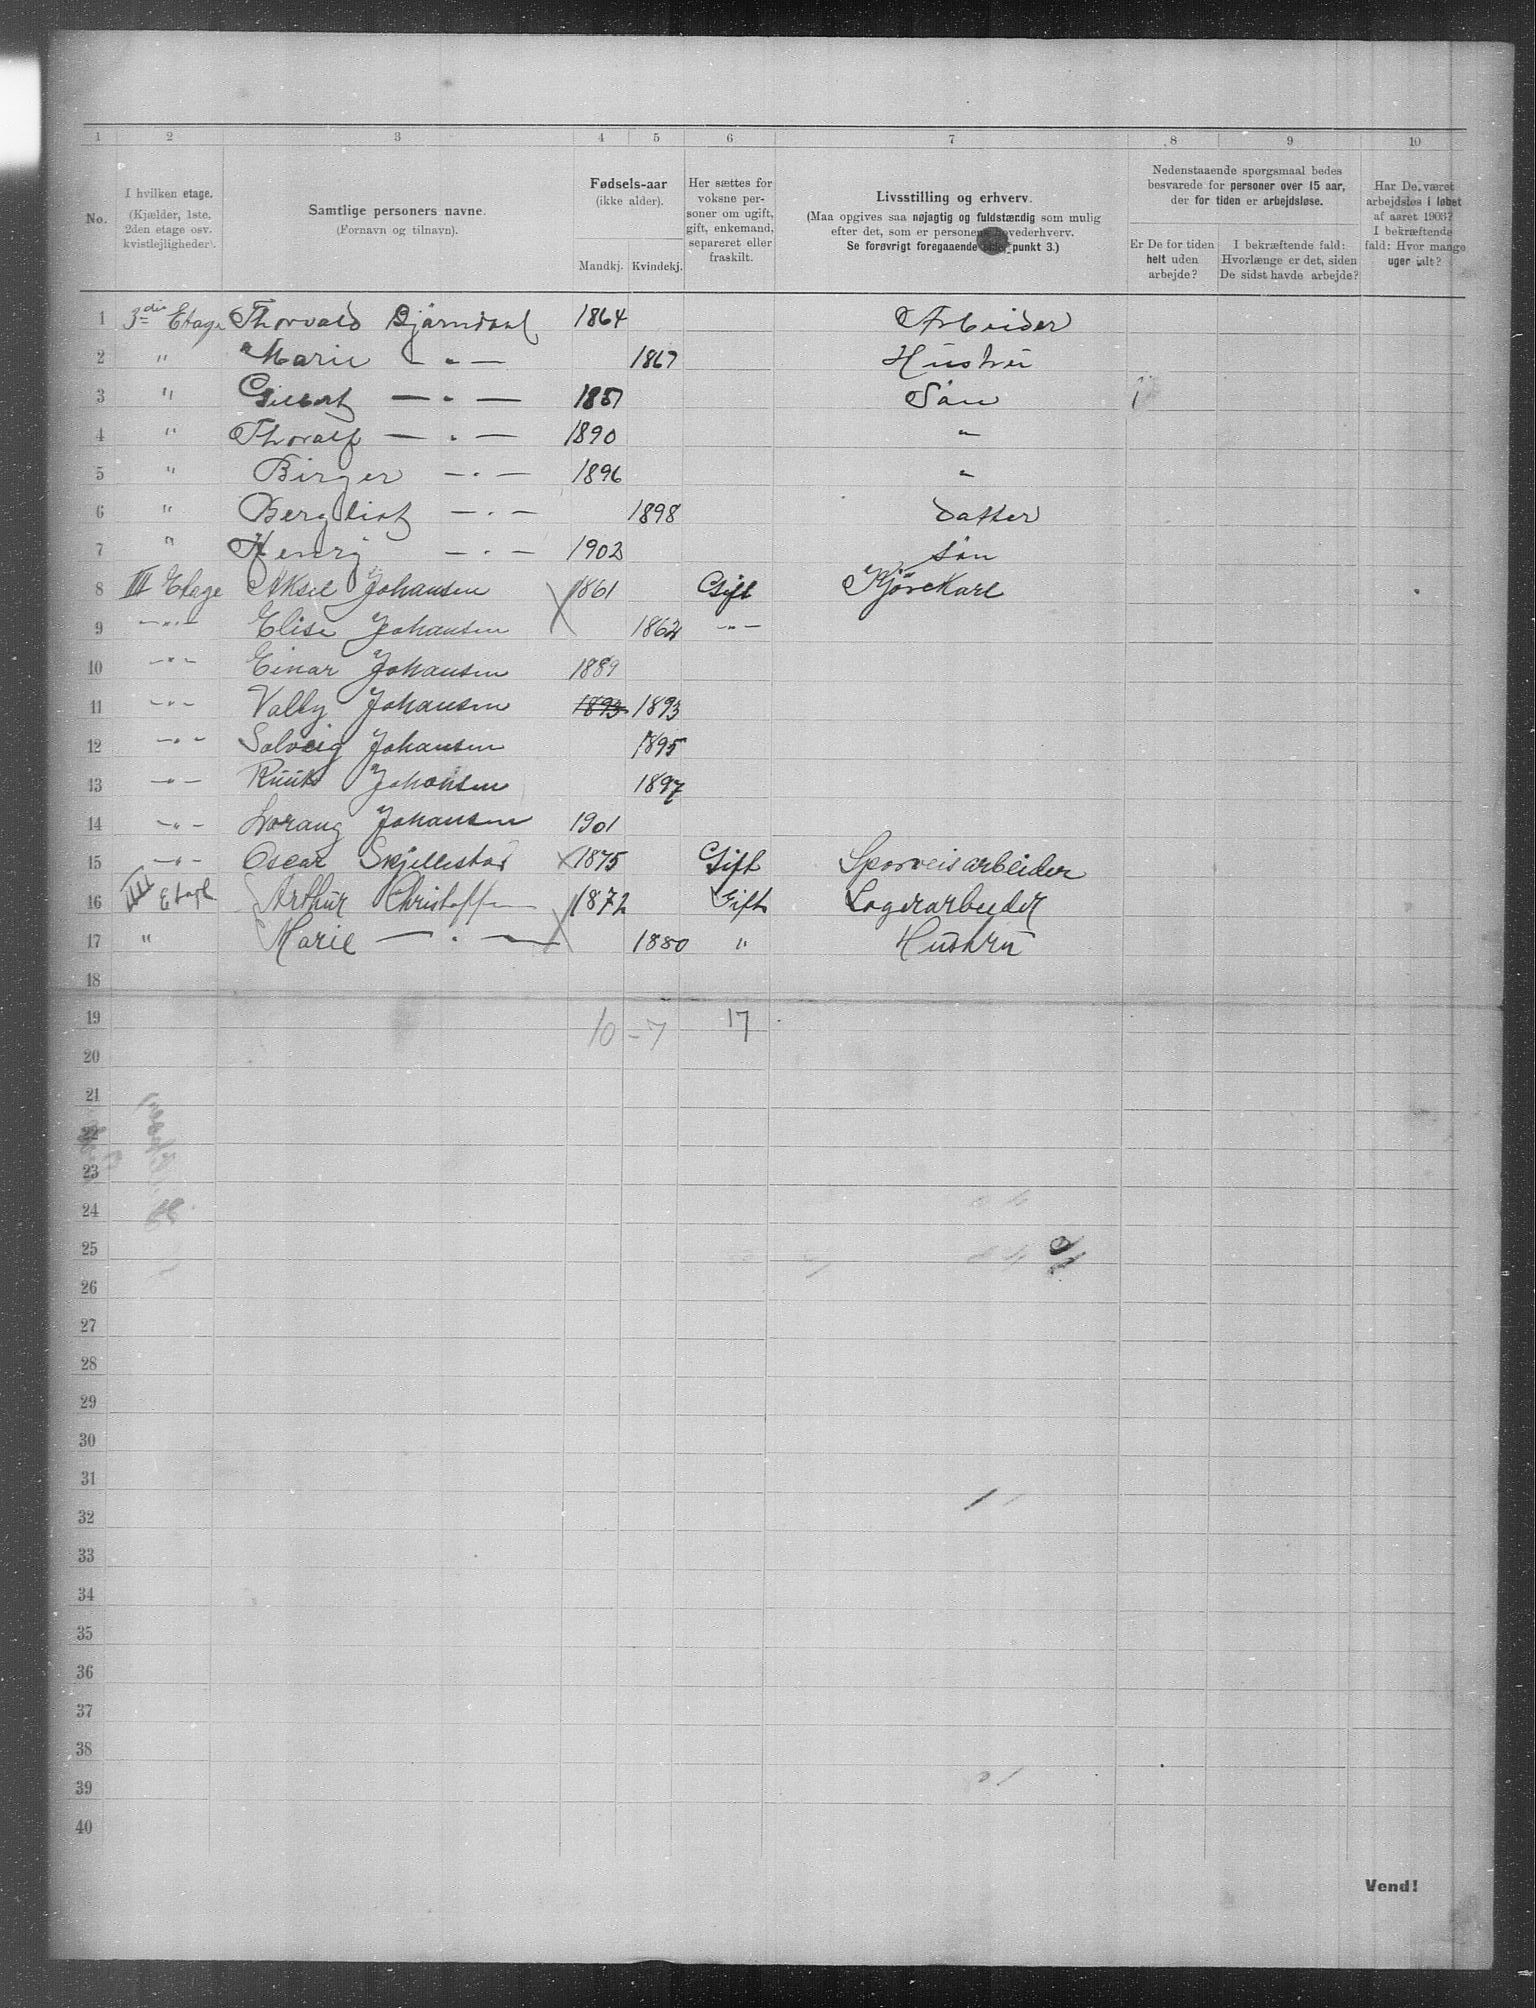 1 2 3 4 5 6 7 8 9 10
No.
I hvilken etage.
(Kjælder, 1ste,
2den etage osv.
kvistlejligheder).
Samtlige personers navne.
(Fornavn og tilnavn).
Fødsels-aar
(ikke alder).
Mandkj. Kvindekj.
Her sættes for
voksne per-
soner om ugift,
gift, enkemand,
separeret eller
fraskilt.
Livsstilling og erhverv.
(Maa opgives saa nøjagtig og fuldstændig som mulig
efter det, som er personens hovederhverv.
Se forøvrigt foregaaende side, punkt 3.)
Nedenstaaende spørgsmaal bedes
besvarede for personer over 15 aar,
der for tiden er arbejdsløse.
Er De for tiden
helt uden
arbejde?
I bekræftende fald:
Hvorlænge er det, siden
De sidst havde arbejde?
Har De været
arbejdsløs i løbet
af aaret 1903?
I bekræftende
fald: Hvor mange
uger ialt?
1 3die Etage Thorvald Bjørndal 1864 Arbeider
2 " Marie — " — 1867 Hustru
3 " — " — Søn
4 " Thoralf — " — 1890 "
5 " Birger — " — 1896 "
6 " Bergliot — " — 1898 Datter
7 " Henry — " — 1902 Søn
8 III Etage Aksel Johansen 1861 Gift Kjørekarl
9 — " — Elise Johansen 1862 — " —
10 — " — Einar Johansen 1889
11 — " — Vally Johansen 1893 1893
12 — " — Solveig Johansen 1895
13 — " — Johansen 1897
14 — " — Lorang Johansen 1901
15 — " — Oscar Skjellestad × 1875 Gift Sporveisarbeider
16 IIII Etage Arthur Christoffersen 1872 Gift Lagerarbeider
17 " Marie — " — × 1880 " Hustru
18
19 10 - 7 17
20
21
22
23
24
25
26
27
28
29
30
31
32
33
34
35
36
37
38
39
40
Vend!